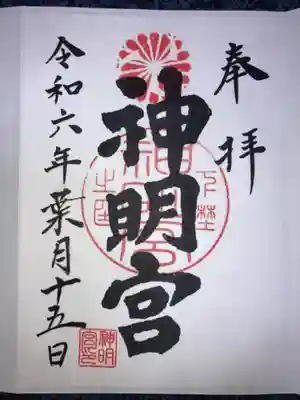 奉拝
神明宮
令和六年葉月十五日
神明宮